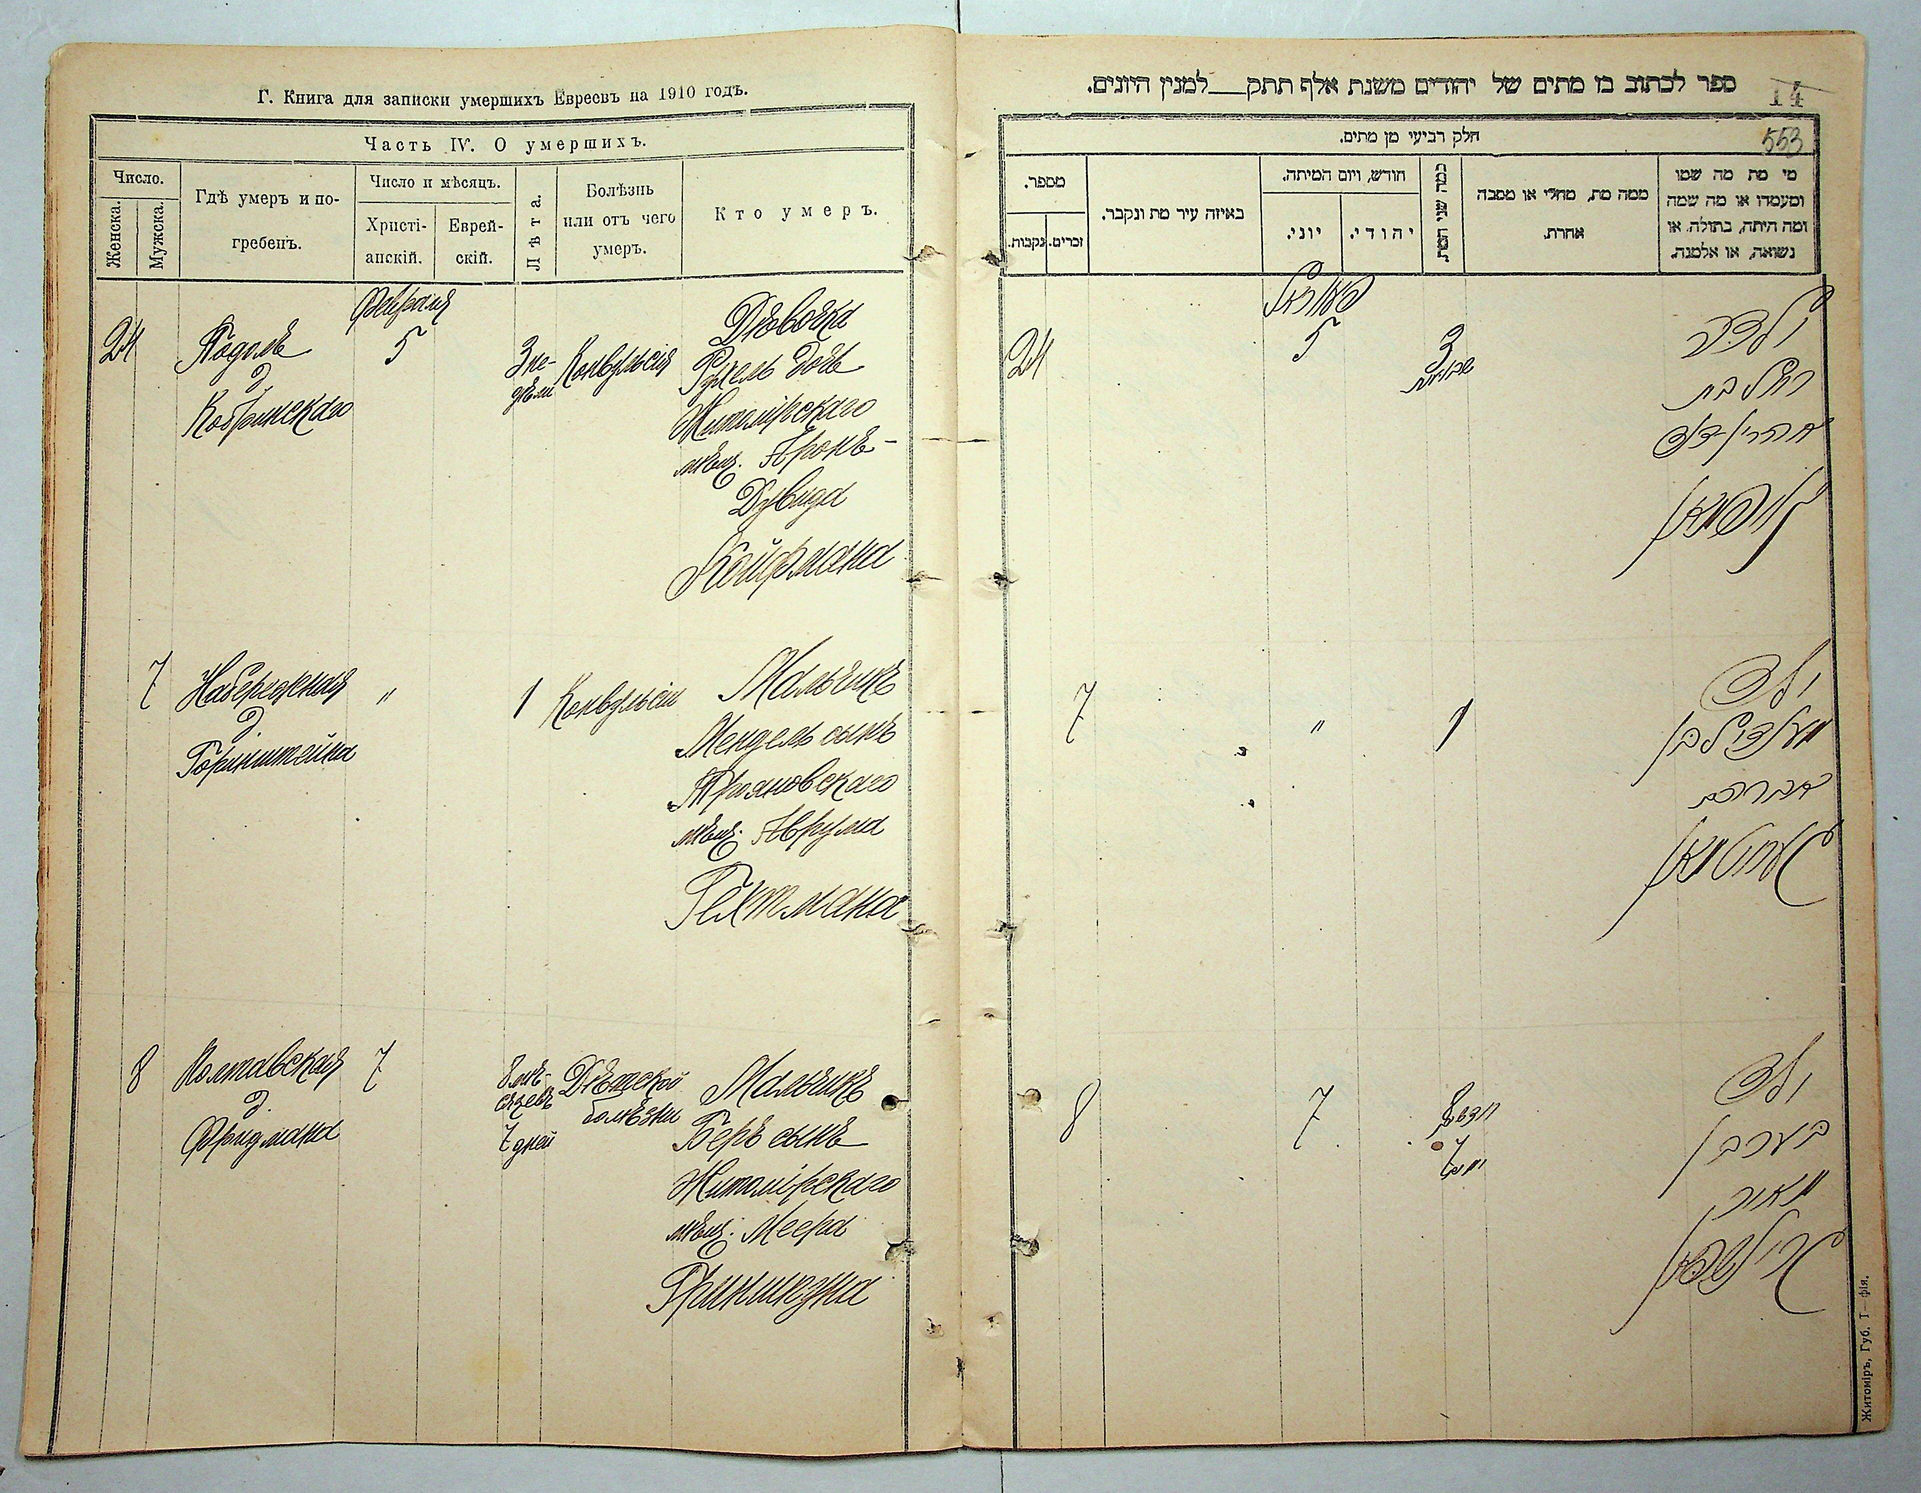 Г. Книга для записки умершихъ Евреевъ на 1910 годъ.
Часть IV. О умершихъ.
Число.
Женска.
Мужска.
Гдѣ умеръ и по-
гребенъ.
Число и мѣсяцъ.
Христі-
анскій.
Еврей-
скій.
Лѣта.
Болѣзнь
или отъ чего
умеръ.
Кто умеръ.
24
Подолъ
д.
Кобринскаго
Февраля
5
3 не-
дѣли
Конвульсія
Дѣвочка
Рухель дочь
Житомірскаго
мѣщ. Аронъ-
Дувида
Койфмана
7
Набережная
д.
Горинштейна
"
1
Конвульсіи
Мальчикъ
Мендель сынъ
Трояновскаго
мѣщ. Аврума
Гехтмана
8
Полтавская
д.
Фридмана
7
8 мѣ-
сяцевъ
7 дней
Дѣтской
болѣзни
Мальчикъ
Беръ сынъ
Житомірскаго
мѣщ. Меера
Гриншпуна
ספר לכתוב בו מתים של יהודים משנת אלף תתק___למנין היונים.
14
553
חלק רביעי מן מתים.
מי מת מה שמו
ומעמדו או מה שמה
ומה היתה, בתולה או
נשואה, או אלמנה.
ממה מת, מחלי או מסבה
אחרת.
כמה שני המת.
חודש, ויום המיתה.
יהודי.
יוני.
באיזה עיר מת ונקבר.
מספר.
זכרים.
נקבות.
ילדה
רחל בת
אהרן דוד
קויפמאן
3
שבועות
5
24
ילד
מענדיל בן
אברהם
געכטמאן
1
"
7
ילד
בער בן
מאיר
גרינשפאן
8
7
7
8
Житоміръ, Губ. Т—фія.